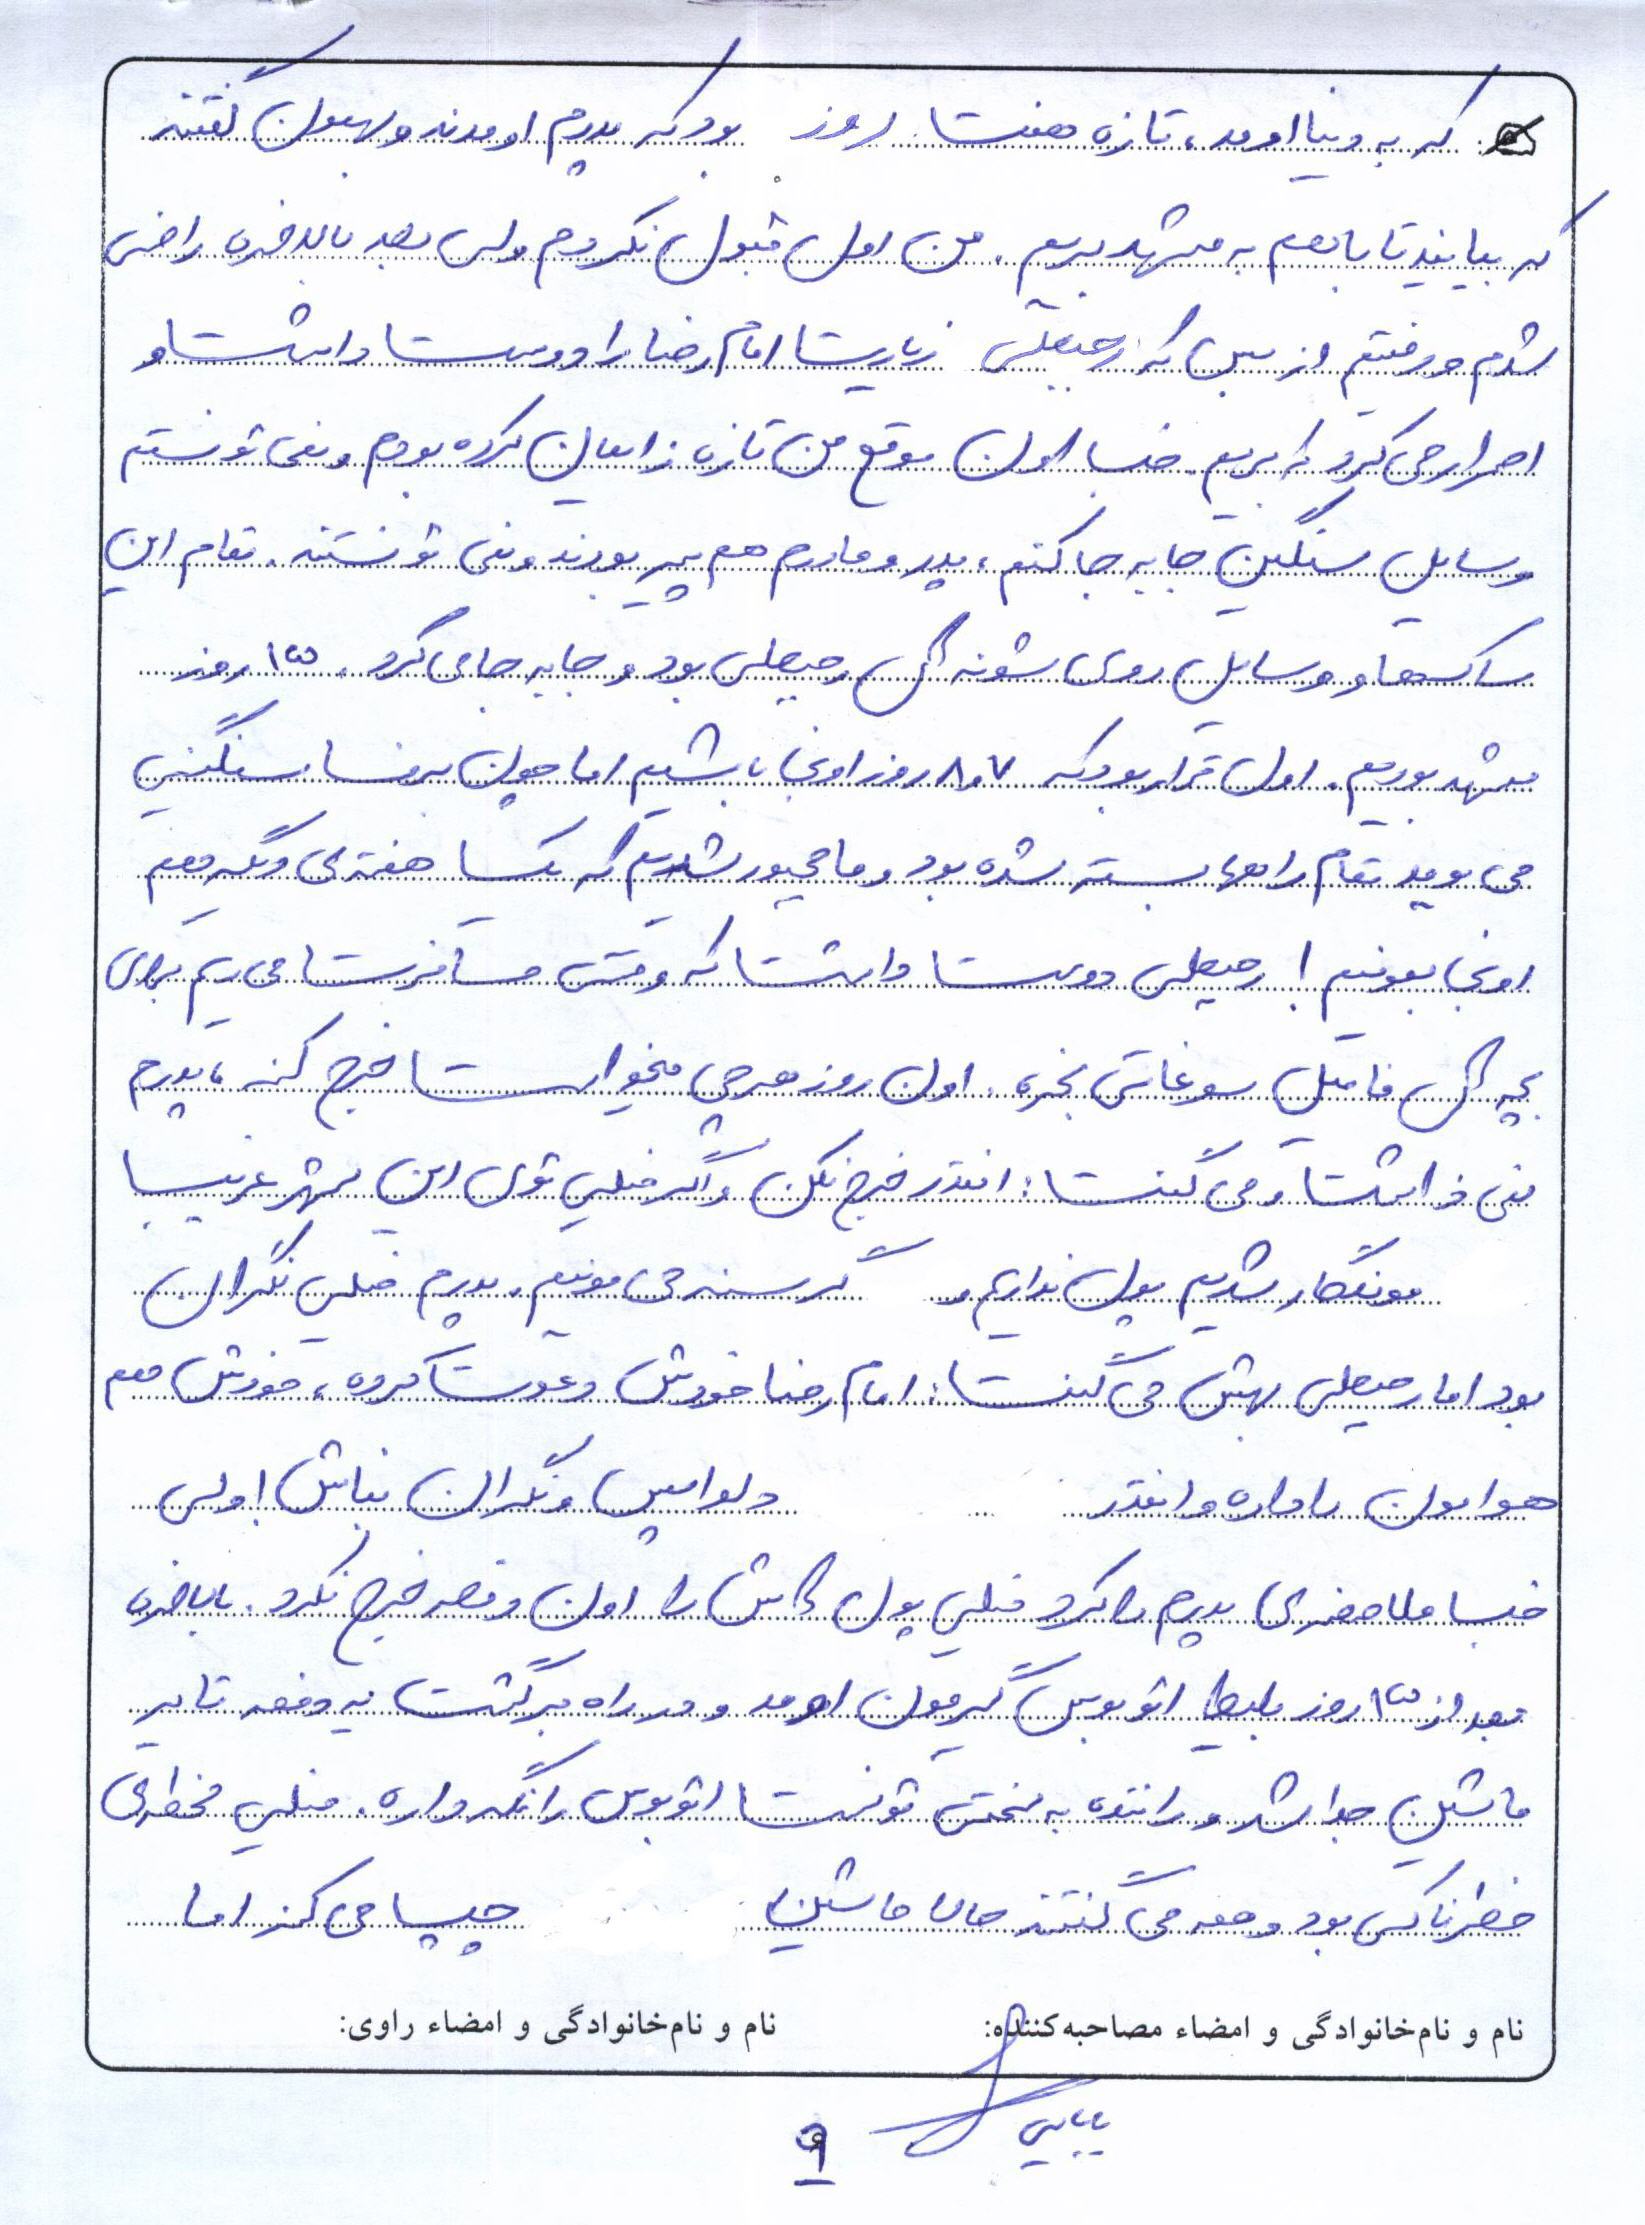 که به دنیا اومد، تازه هفت روز بود که پدرم اومدند و بهمون گفتند
که بیایید تا باهم به مشهد بریم. من اول قبول نکردم ولی بعد بالاخره راضی
شدم و رفتیم از بس که رجبعلی زیارت امام رضا را دوست داشت و
اصرار می‌کرد که بریم. خب اون موقع من تازه زایمان کرده بودم و نمی‌تونستم
وسایل سنگین جابه‌جا کنم، پدر و مادرم هم پیر بودند و نمی‌تونستند. تمام این
ساک‌ها و وسایل روی شونه‌ای رجبعلی بود و جابه‌جا می‌کرد. ۱۵ روز
مشهد بودیم. اول قرار بود که ۷ و ۸ روز اونجا باشیم اما چون برف سنگینی
می بومد تمام راه‌ها بسته شده بود و ما مجبور شدیم که یک هفته‌ی دیگه هم
اونجا بمونیم! رجبعلی دوست داشت که وقتی مسافرت می‌ریم برای
بچه‌ای فامیل سوغاتی بخره. اون روز هرچی میخواست خرج کنه، پدرم
نمی‌ذاشت و می‌گفت: انقدر خرج نکن و اگر خیلی توی این شهر غریب
موندگار شدیم پول نداریم و گرسنه می‌مونیم. پدرم خیلی نگران
بود اما رجبعلی بهش می‌گفت: امام رضا خودش دعوت کرده، خودش هم
هوامون را داره و انقدر دلواپس و نگران نباش! ولی
خب ملاحظه‌ی پدرم را کرد خیلی پول‌هاش را اون دفعه خرج نکرد. بالاخره
بعد از ۱۵ روز بلیط اتوبوس گیرمون اومد و در راه برگشت یه دفعه تایر
ماشین جدا شد و راننده به سختی تونست اتوبوس را نگه داره. خیلی لحظه‌ی
خطرناکی بود و همه می‌گفتند حالا ماشین چپ می‌کنه اما
نام و نام‌خانوادگی و امضاء مصاحبه‌کننده: نام و نام‌خانوادگی و امضاء راوی:
بابایی
۹